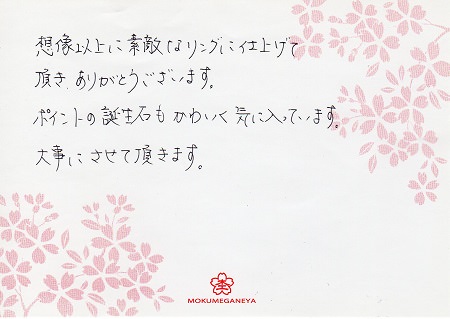 想像以上に素敵なリングに仕上げて
頂き ありがとうございます。
ポイントの誕生石もかわいく気に入っています。
大事にさせて頂きます。
MOKUMEGANEYA